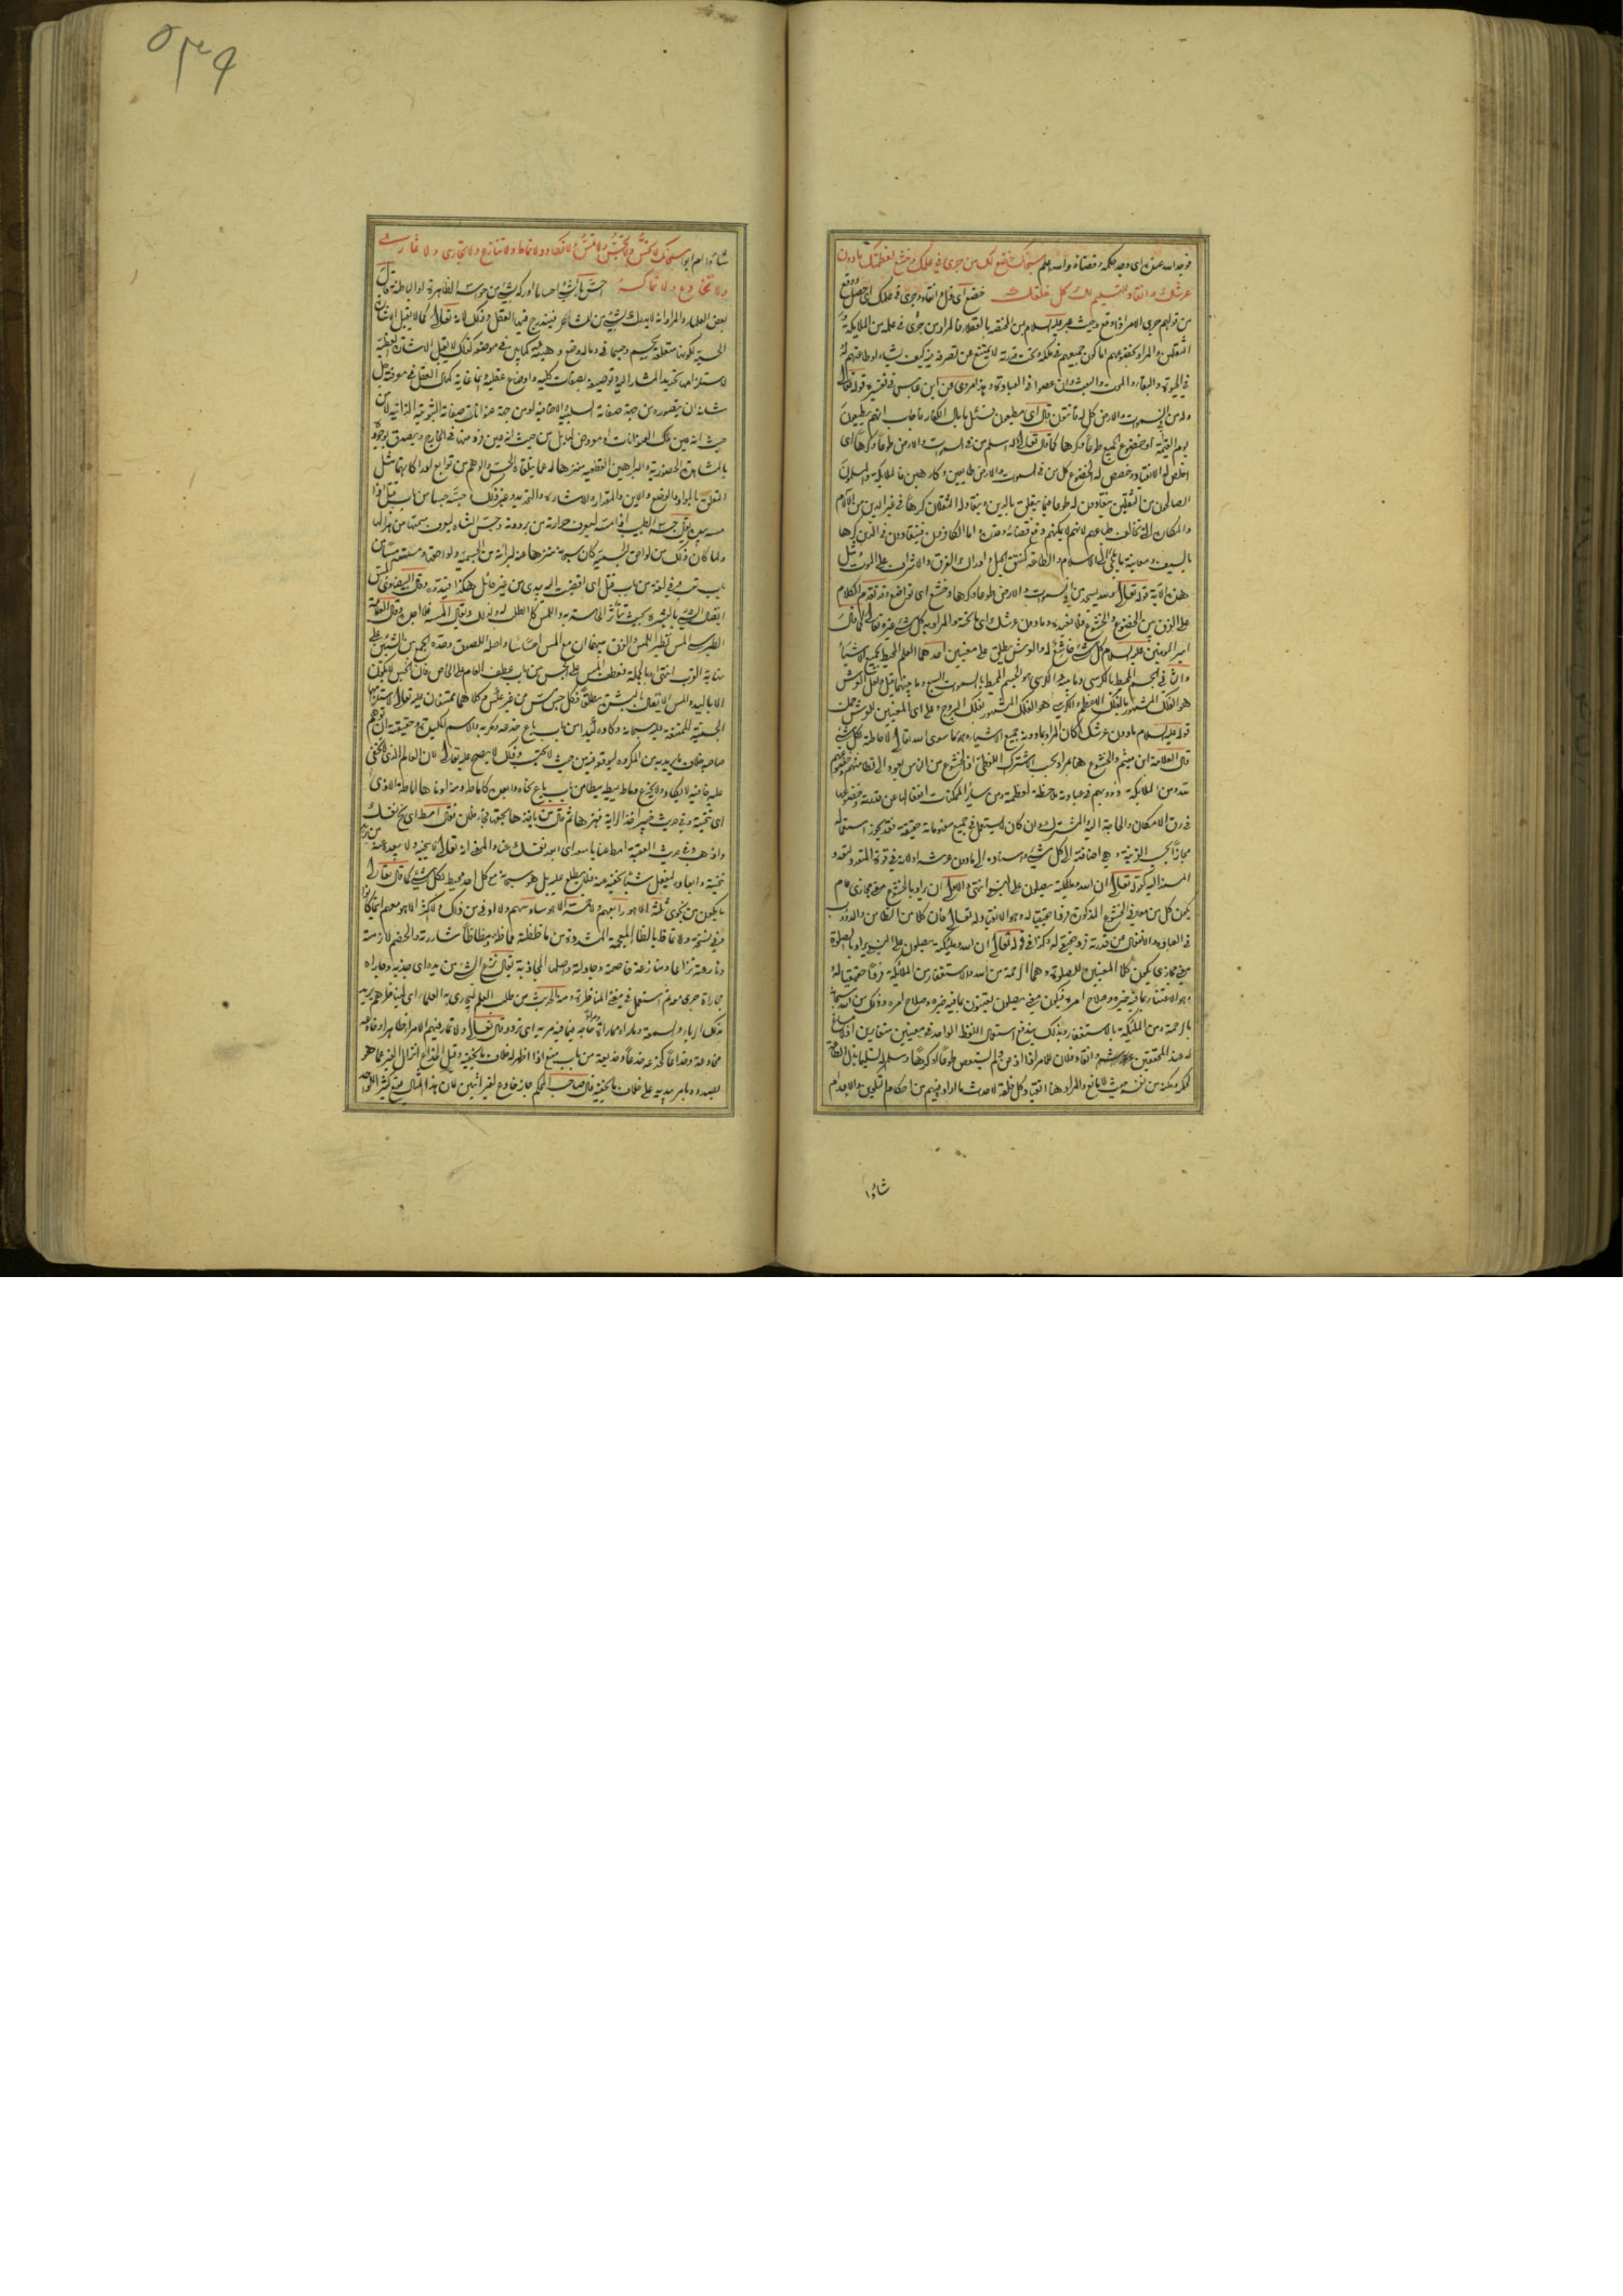 فوجد الله عنده اى وجد حكمه وقضائه والله اعلم سبحانك خضع لك من جرى فى علمك وخشع لعظمتك ما دون
عرشك وانقاد للتسليم لك كل خلقك خضع اى ذل وانقاد وجرى فى علمك اى حصل ووقع
من قولهم جرى الامر اذا وقع وحيث عبر عليه السلام بمن المختصه بالعقلاء فالمراد بمن جرى فى علمه من الملايكة و
الثقلين والمراد بخضوعهم اما كون جميعهم فى ملكه وتحت قدرته لا يمتنع عن تصرفه فيه كيف يشاء او طاعتهم له
فى الحيوة والبقاء والموت والبعث وان عصوا فى العبادة وهذا مروى عن ابن عباس فى تفسير قوله تعالى
وله من فى السموات والارض كل له قانتون قال اى مطيعون فسئل ما بال الكفار فاجاب انهم يطيعون
يوم القيمة او خضوع الجميع طوعا وكرها كما قال تعالى وله اسلم من فى السموات والارض طوعا وكرها اى
اخلص له الانقياد وخصص له الخضوع كل من فى السموات والارض طايعين وكارهين فالملايكة والمسلمون
الصالحون من الثقلين ينقادون له طوعا فيما يتعلق بالدين وينقاد له الثقلان كرها فى غير الدين من الآلام
والمكاره التى تخالف طباعهم لانهم لا يمكنهم دفع قضائه وقدره اما الكافرون فينقادون فى الدين كرها
بالسيف ومعاينة ما يلجئ الى الاسلام والطاعة كنتق الجبل وادراك الغرق والاشراف على الموت ومثل
هذه الآية قوله تعالى ولله يسجد من فى السموات والارض طوعا وكرها وخشع اى تواضع وقد تقدم الكلام
على الفرق بين الخضوع والخشوع فلا نعيده وما دون عرشك اى ما تحته والمراد به كل شئ غيره تعالى كما قال
امير المومنين عليه السلام كل شئ خاشع له والعرش يطلق على معنيين احدهما العلم المحيط بجميع الاشياء
والثانى الجسم المحيط بالكرسى وما فيه والكرسى هو الجسم المحيط بالسموات السبع وما بينهما قيل وقيل العرش
هو الفلك المشهور بالفلك الاعظم والكرسى هو الفلك المشهور بفلك البروج وعلى اى المعنيين للعرش حمل
قوله عليه السلام ما دون عرشك كان المراد بما دونه جميع الاشياء مما سوى الله تعالى لاحاطته بكل شئ
قال العلامة ابن ميثم والخشوع هنا مراد بحسب الاشتراك اللفظى اذ الخشوع من الناس يعود الى تطامنهم وخضوعهم
لله ومن الملائكة دؤوبهم فى عبادته ملاحظة لعظمته ومن ساير الممكنات انفعالها عن قدرته وخضوعها
فى رق الامكان والحاجة اليه والمشترك وان كان لا يستعمل فى جميع مفهوماته حقيقة فقد يجوز استعماله
مجازا بحسب القرينة وهى اضافته الى كل شئ واسناده الى ما دون عرشه او لانه فى قوة المتعدد لتعدد
المسند اليه كقوله تعالى ان الله وملئكته يصلون على النبى انتهى والاولى ان يراد بالخشوع معنى مجازى عام
يكون كل من معانى الخشوع المذكورة فردا حقيقيا له وهو الانقياد له تعالى فان كلا من التطامن والدؤوب
فى العبادة والانفعال عن قدرته فرد حقيقى له وكذا فى قوله تعالى ان الله وملئكته يصلون على النبى يراد بالصلوة
معنى مجازى يكون كلا المعنيين للصلوة وهما الرحمة من الله والاستغفار من الملائكة فردا حقيقيا له
وهو الاعتناء بما فيه خيره وصلاح امره فيكون معنى يصلون يعتنون بما فيه خيره وصلاح امره وذلك من الله سبحانه
بالرحمة ومن الملئكة بالاستغفار وبذلك يندفع استعمال اللفظ الواحد فى معنيين متغايرين اذ لا مساغ
له عند المحققين وانقاد فلان للامر اذا اذعن ولم يستعص طوعا او كرها وسلم له تسليما بذل الطاعة
لحكمه ومكنه من نفسه حيث لا مانع والمراد هنا انقياد كل خلقه لاحداث ما اراد فيهم من احكام التكوين والاعدام
شاؤا
٥٣٩
شاؤا ام ابوا سبحانك لا تحس ولا تجس ولا تمس ولا تكاد ولا تماط ولا تنازع ولا تجارى ولا تمارى
ولا تخادع ولا تماكر احس بالشئ احساسا ادركه بشئ من حواسه الظاهرة او الباطنة وقال
بعض العلماء والمراد انه لا يدرك بشئ من المشاعر فيندرج فيها العقل وذلك لانه تعالى كما لا يقبل الاشارة
الحسية لكونها متعلقة بجسم وجسمانى وما له وضع وهيئة كما بين فى موضعه كذلك لا يقبل الاشارة العقلية
لاستلزامها تحديد المشار اليه وتوصيفه بصفات كلية واوضاع عقلية وانما غاية كمال العقل فى معرفته جل
شانه ان يتصوره من جهة صفاته السلبية والاضافية او من جهة عنوانات صفاته الثبوتية الذاتية لا من
حيث انه عين تلك العنوانات او معروض لها بل من حيث انه عين فرد منها فى الخارج ويصدق بوجوده
بالمشاهدة الحضورية والبراهين القطعية منزها له عما يتلقاه الحس والوهم من توابع ادراكاتهما مثل
التعلق بالمواد والوضع والاين والمقدار والاشارة والتحديد وغير ذلك وجسه جسا من باب قتل اذا
مسه بيده يقال جس الطبيب اذا مسه ليعرف حرارته من برودته وجس الشاة ليعرف سمنها من هزالها
ولما كان ذلك من لواحق الجسمية كان سبحانه منزها عنه لبراءته من الجسمية ولواحقها ومسسته مسا من
باب تعب وفى لغة من باب قتل اى افضيت اليه بيدى من غير حائل هكذا قيدوه وقال البيضاوى المس
ايصال الشئ بالبشرة بحيث تتأثر الحاسة به واللمس كالطلب له ولذلك يقال المسه فلا اجده وقال العلامة
الطبرسى المس نظير اللمس والفرق بينهما ان مع اللمس احساسا واصله اللصوق وحده الجمع بين الشيئين على
نهاية القرب انتهى وبالجملة فعطف المس على الجس من باب عطف العام على الخاص فان الجس لا يكون
الا باليد والمس الايصال بالبشرة مطلقا فكل جس مس من غير عكس وكلاهما ممتنعان عليه تعالى لاستلزامهما
الجسمية الممتنعة عليه سبحانه وكاده كيدا من باب باع خدعه ومكر به والاسم المكيدة وحقيقته ان توهم
صاحبك خلاف ما تريد به من المكروه ليوقعه فيه من حيث لا يحتسب وذلك لا يصح عليه تعالى لان العالم الذى لا تخفى
عليه خافية لا يكاد ولا يخدع وماط يميط ميطا من باب باع تباعد وابعد كاماط ومنه اماطة الاذى
اى تنحيته وفى حديث خيبر اخذ الراية فهزها ثم قال من ياخذها بحقها فجاء فلان فقال امط اى نح نفسك
واذهب وفى حديث العقبة امط عنا يا سعد اى ابعد نفسك عنا والمعنى انه تعالى لا ينحى ولا يبعد عن شئ
تنحيته وابعاده ليفعل شيئا يخفيه عنه فلا يطلع عليه بل هو سبحانه مع كل احد ومحيط بكل شئ كما قال تعالى
ما يكون من نجوى ثلثة الا هو رابعهم ولا خمسة الا هو سادسهم ولا ادنى من ذلك ولا اكثر الا هو معهم اينما كانوا
وفى نسخة ولا تماظ بالظاء المعجمة المشددة من ماظظته مماظة ومظاظا شاررته والخصم لازمته
ونازعته نزاعا ومنازعة خاصمته وجادلته واصلها المجاذبة يقال نزع الشئ من يده اى جذبه وجاراه
مجاراة جرى معه ثم استعمل فى معنى المناظرة ومنه الحديث من طلب العلم ليجارى به العلماء اى ليناظرهم يريد
بذلك الرياء والسمعة وماراه مماراة ومراء حاجه فيما فيه مرية اى تردد قال تعالى ولا تمار فيهم الا مراء ظاهرا وخادعه
مخادعة وخداعا كخدعه خدعا وخديعة من باب منع اذا اظهر له خلاف ما يخفيه وقيل الخداع انزال الغير عما هو
بصدده بامر يبديه على خلاف ما يخفيه قال صاحب المحكم جاز خادع لغير اثنين لان هذا المثال يقع كثيرا للواحد